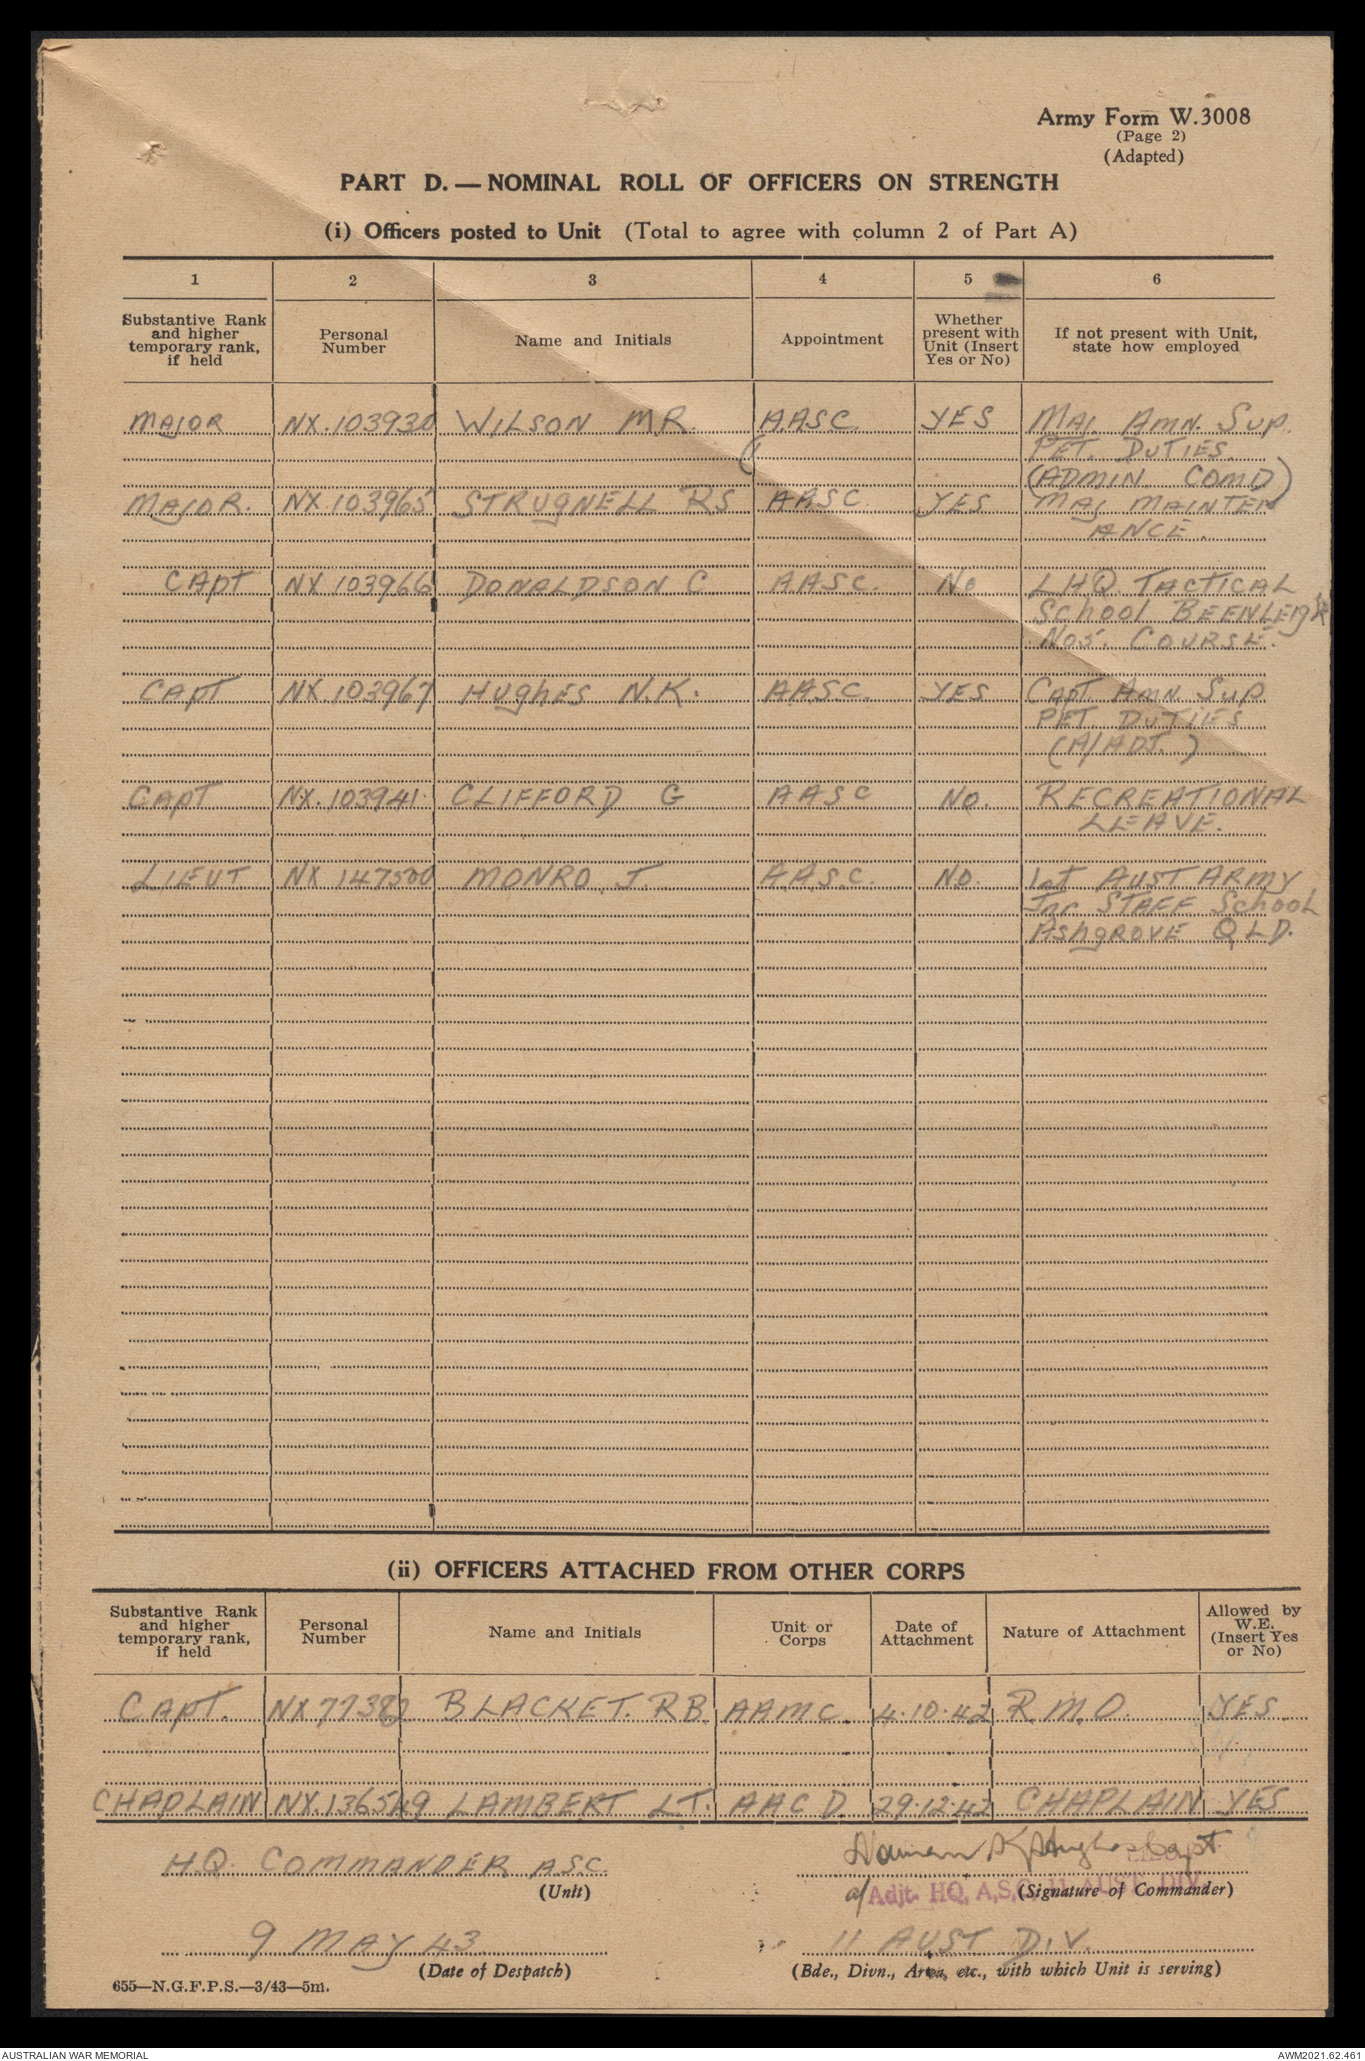 Army Form W.3008
(Page 2)
(Adapted)
PART D.—NOMINAL ROLL OF OFFICERS ON STRENGTH
(i) Officers posted to Unit (Total to agree with column 2 of Part A)
1 2 3 4 5 6
Substantive Rank and higher temporary rank, if held
Personal Number
Name and Initials
Appointment
Whether present with Unit (Insert Yes or No)
If not present with Unit, state how employed
MAJOR NX.103930 WILSON MR. AASC. YES MAJ. AMN. SUP.
PET. DUTIES.
(ADMIN. COMD)
MAJOR. NX.103965 STRUGNELL RS AASC. YES MAJ MAINTEN
ANCE.
CAPT NX 103966 DONALDSON C AASC. No LHQ. TACTICAL
School BEENLEIgh
No5. COURSE.
CAPT NX 103967 HUghES N.K. AASC. YES CAPT. AMN. SUP
PET. DUTIES
(A/ADJT.)
CAPT NX.103941 CLIFFORD G AASC NO. RECREATIONAL
LEAVE.
LIEUT NX 147500 MONRO. J. A.A.S.C. NO. 1st AUST ARMY
Jnr STAFF School
AShgROVE QLD.
(ii) OFFICERS ATTACHED FROM OTHER CORPS
Substantive Rank and higher temporary rank, if held
Personal Number
Name and Initials
Unit or Corps
Date of Attachment
Nature of Attachment
Allowed by W.E. (Insert Yes or No)
CAPT. NX77382 BLACKET. RB. AAMC. 4.10.42 R.M.O. YES
CHAPLAIN NX.136549 LAMBERT LT. AACD. 29.12.42 CHAPLAIN YES
H.Q. COMMANDER ASC.
(Unit)
Norman K Hughes Capt.
a/ Adjt. HQ, A.S.C. 11 AUST. DIV.
(Signature of Commander)
9 MAY 43
(Date of Despatch)
11 AUST DIV.
(Bde., Divn., Area, etc., with which Unit is serving)
655—N.G.F.P.S.—3/43—5m.
AUSTRALIAN WAR MEMORIAL
AWM2021.62.461